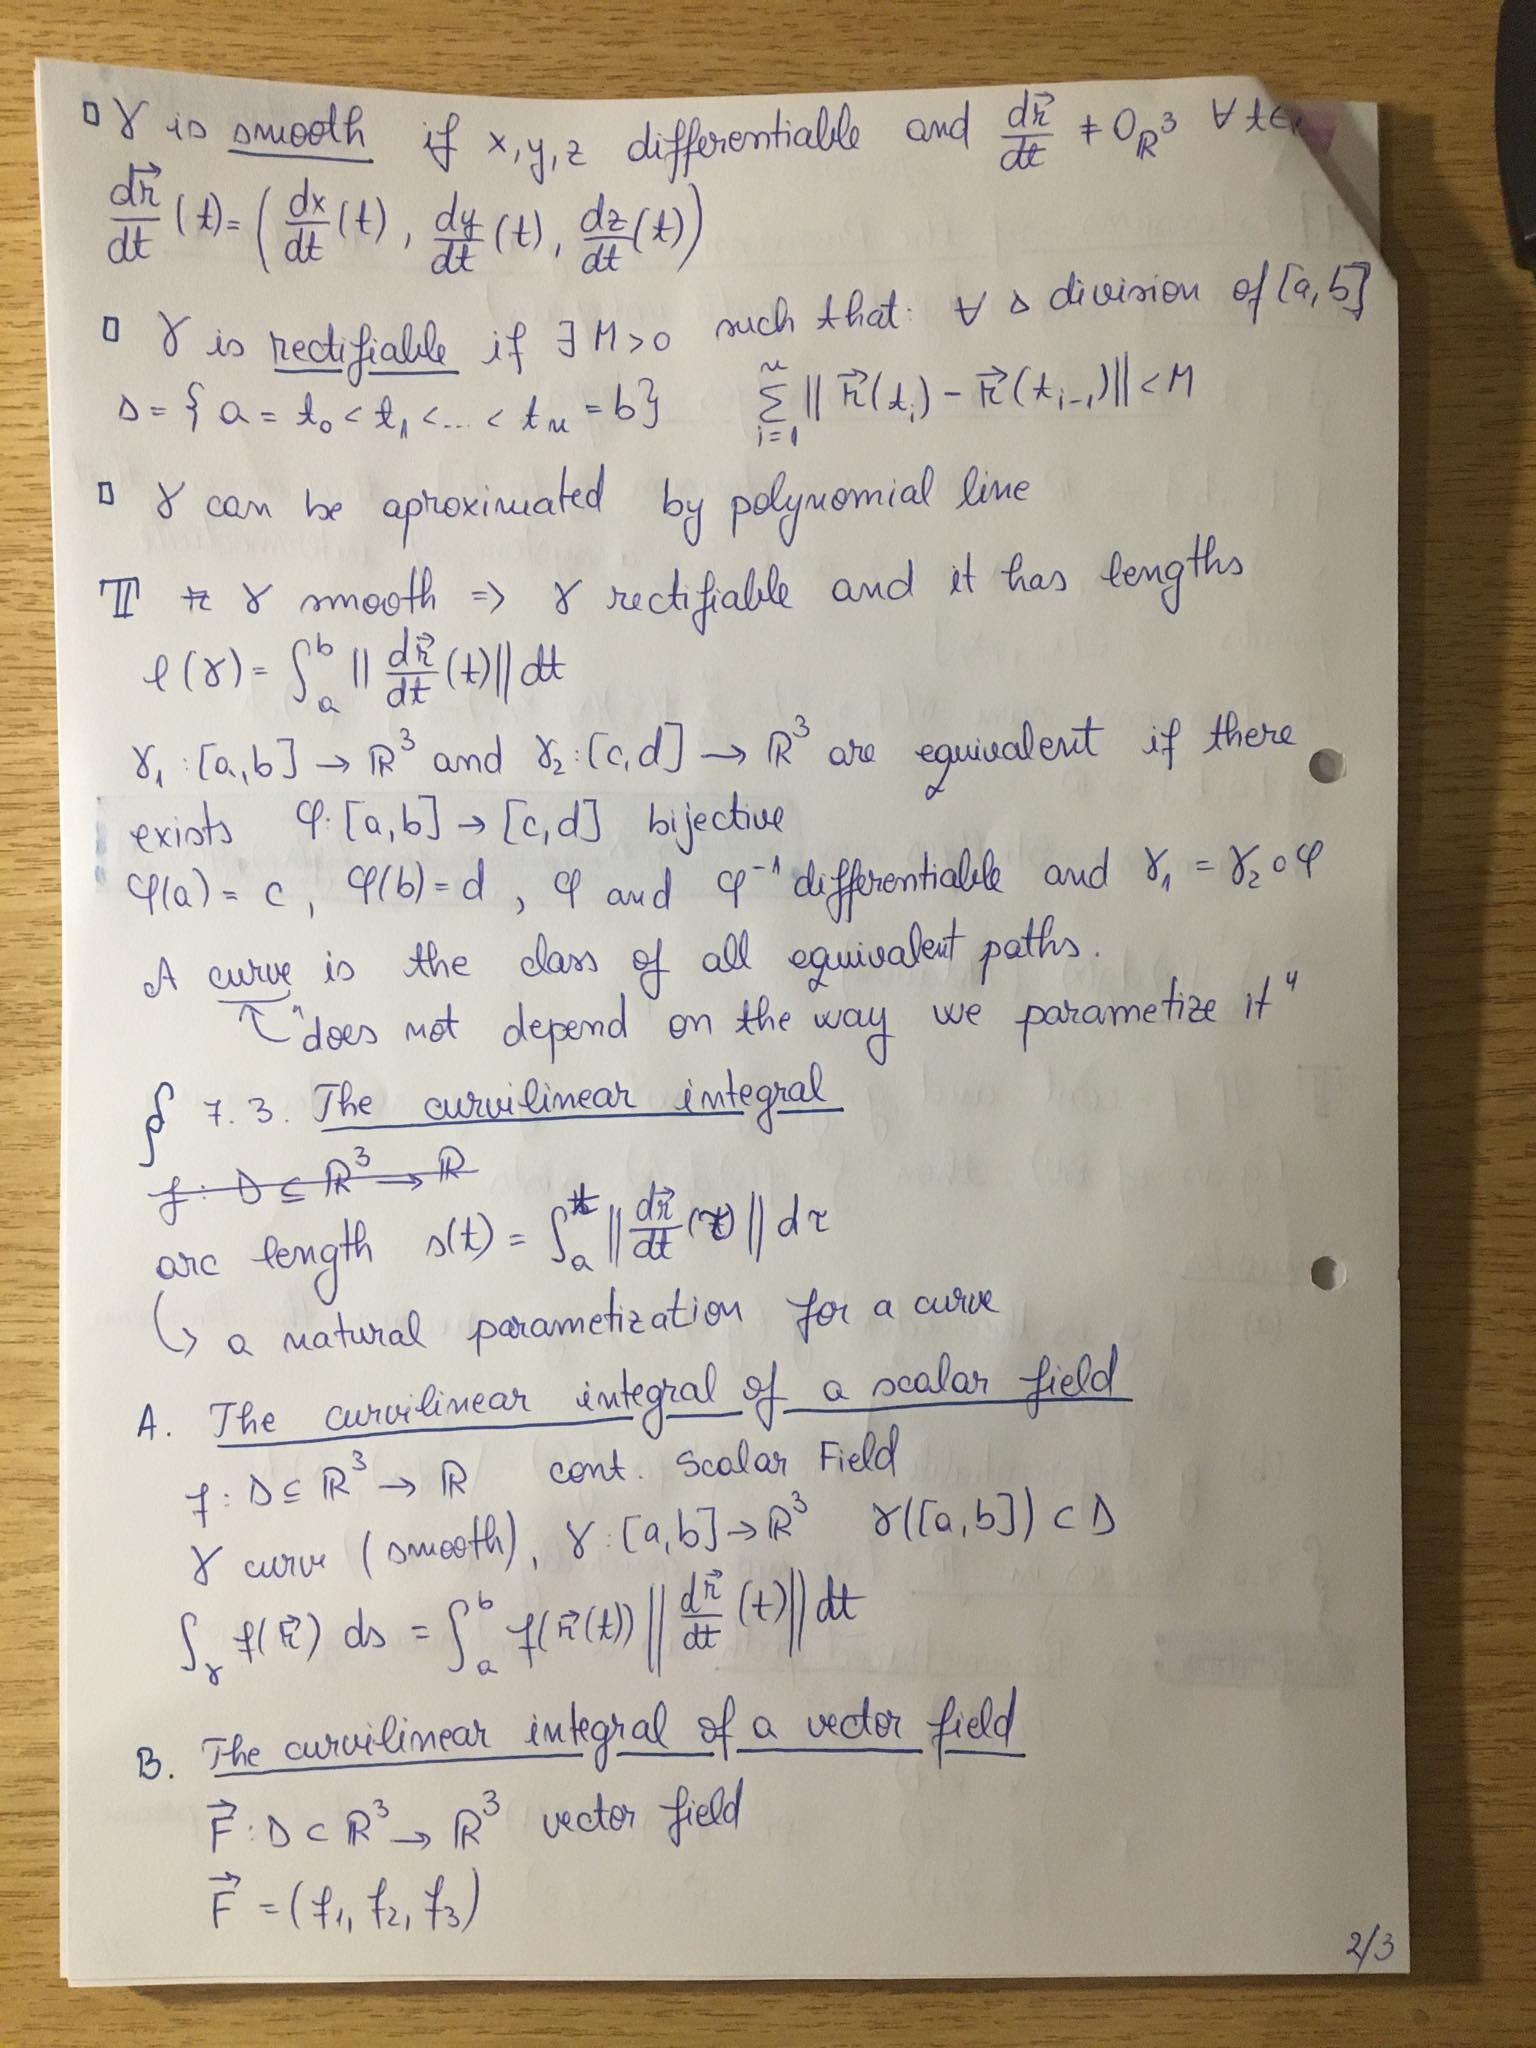 ▯ γ is smooth if x, y, z differentiable and dr⃗/dt ≠ 0_ℝ³ ∀ t∈
dr⃗/dt (t) = (dx/dt (t), dy/dt (t), dz/dt (t))
▯ γ is rectifiable if ∃ M>0 such that: ∀ Δ division of [a,b]
Δ = {a = t₀ < t₁ < ... < tₙ = b} Σᵢ₌₁ⁿ ‖ r⃗(tᵢ) - r⃗(tᵢ₋₁) ‖ < M
▯ γ can be aproximated by polynomial line
T γ smooth => γ rectifiable and it has lengths
l(γ) = ∫ₐᵇ ‖ dr⃗/dt (t) ‖ dt
γ₁ : [a,b] → ℝ³ and γ₂ : [c,d] → ℝ³ are equivalent if there
exists φ: [a,b] → [c,d] bijective
φ(a) = c, φ(b) = d, φ and φ⁻¹ differentiable and γ₁ = γ₂ ∘ φ
A curve is the class of all equivalent paths.
"does not depend on the way we parametize it"
§ 7.3. The curvilinear integral
f : D ⊆ ℝ³ → ℝ
arc length s(t) = ∫ₐᵗ ‖ dr⃗/dt (τ) ‖ dτ
↳ a natural parametization for a curve
A. The curvilinear integral of a scalar field
f : D ⊆ ℝ³ → ℝ cont. Scalar Field
γ curve (smooth), γ : [a,b] → ℝ³ γ([a,b]) ⊂ D
∫_γ f(r⃗) ds = ∫ₐᵇ f(r⃗(t)) ‖ dr⃗/dt (t) ‖ dt
B. The curvilinear integral of a vector field
F⃗ : D ⊂ ℝ³ → ℝ³ vector field
F⃗ = (f₁, f₂, f₃)
2/3